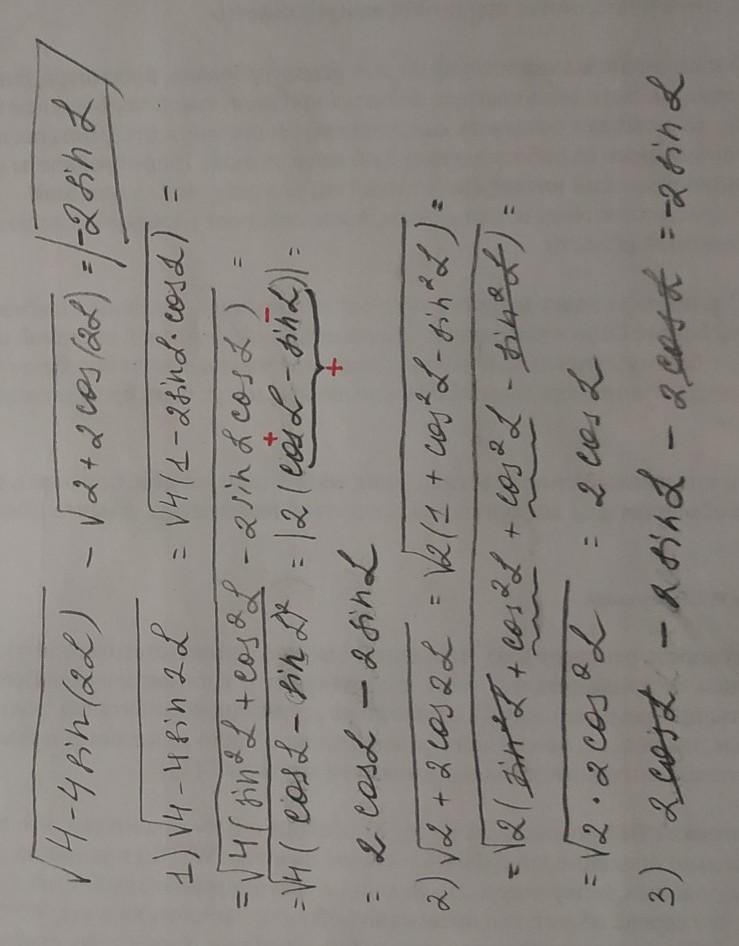 √4-4sin(2α) - √2+2cos(2α) = |-2sinα
1) √4-4sin2α = √4(1-2sinα·cosα) =
= √4(sin²α+cos²α - 2sinαcosα) =
= √4(cosα-sinα)² = |2(cosα-sinα)| =
+ -
+
= 2cosα - 2sinα
2) √2+2cos2α = √2(1+cos²α-sin²α) =
= √2(sin²α+cos²α+cos²α-sin²α) =
= √2·2cos²α = 2cosα
3) 2cosα - 2sinα - 2cosα = -2sinα